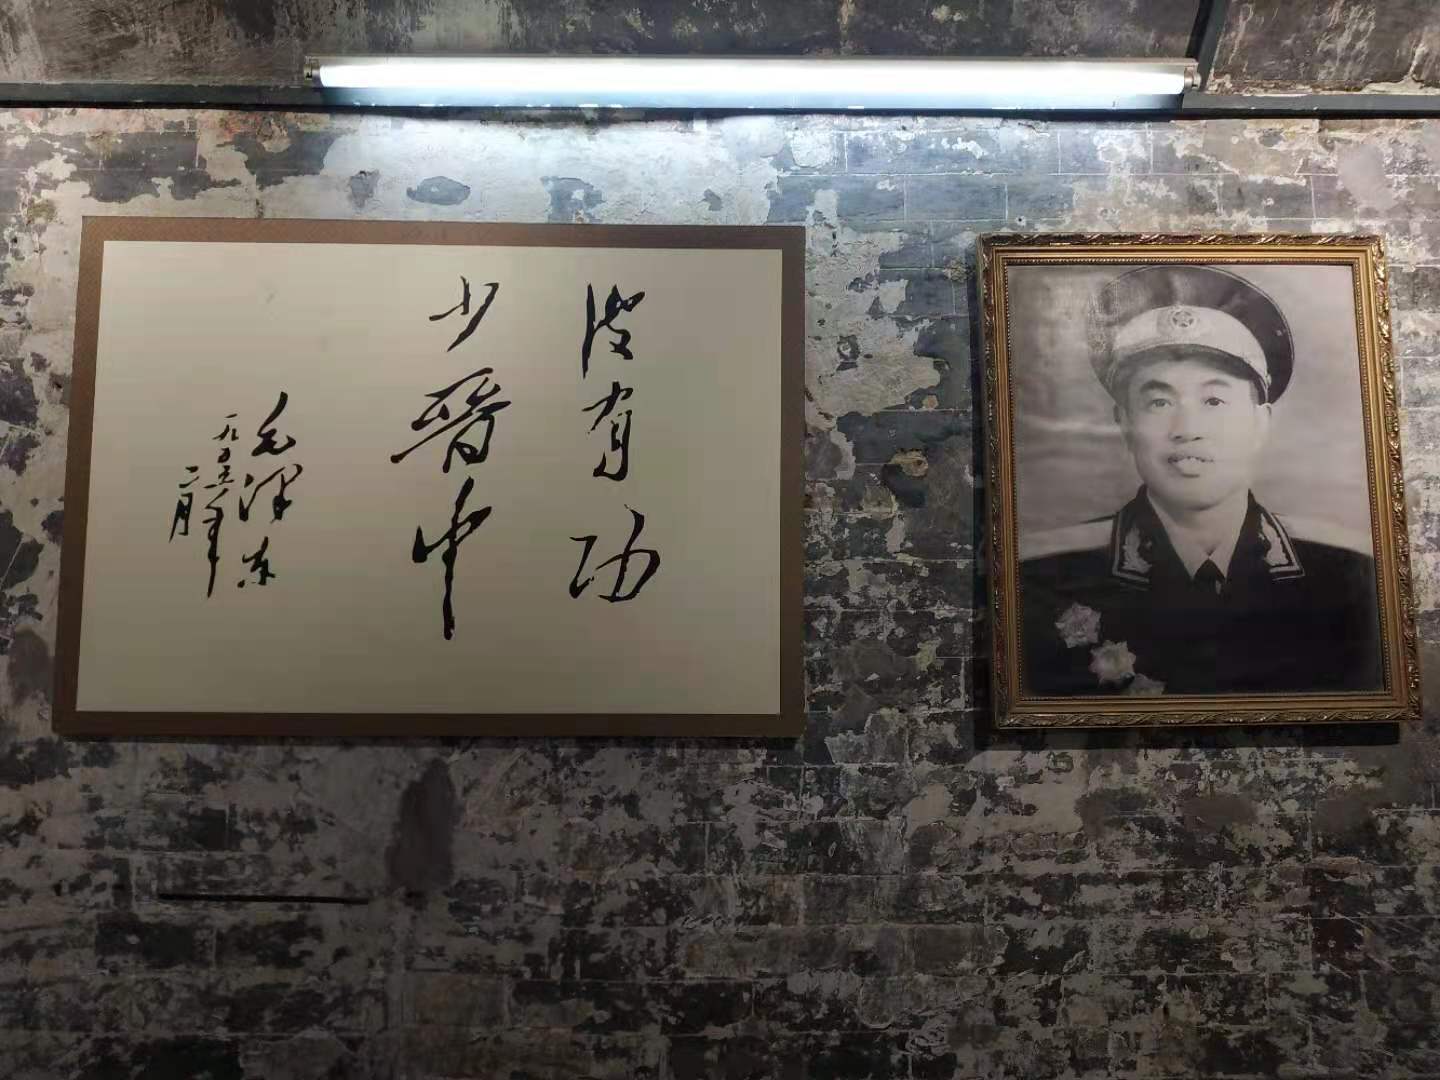 没有功
少晋中
毛泽东
一九五六年
二月